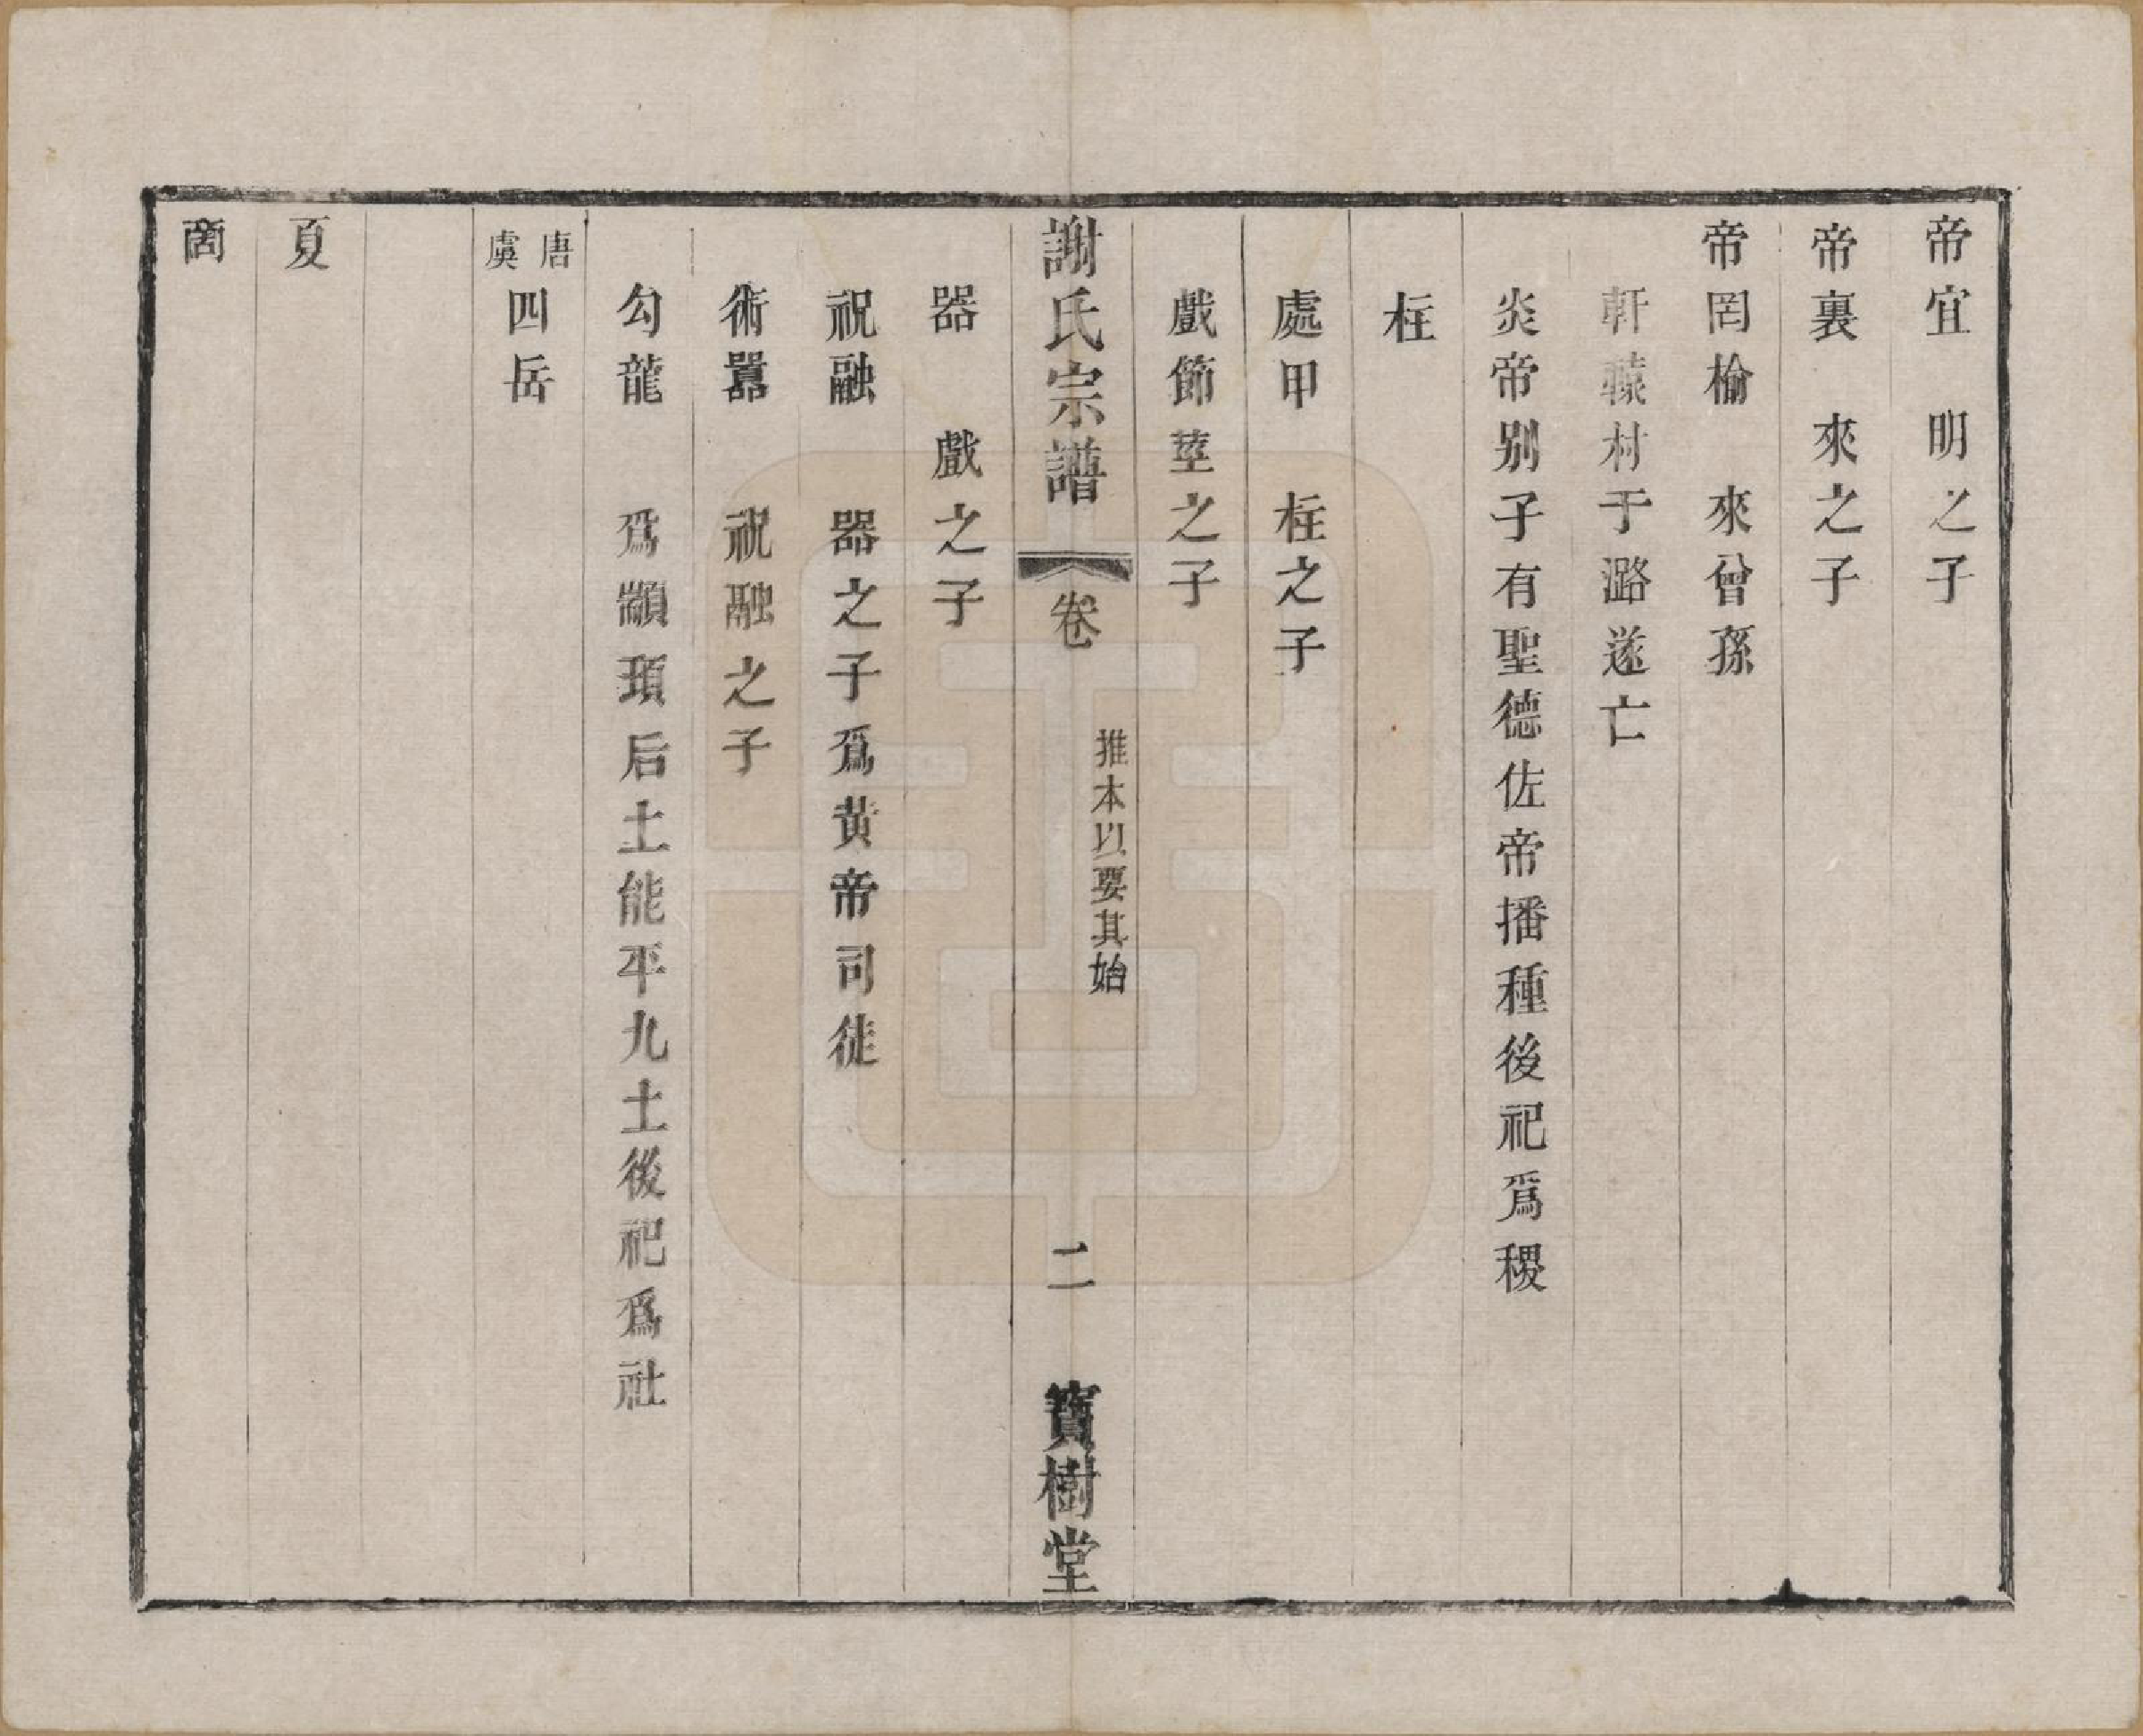 帝宜　明之子
帝裏　來之子
帝罔榆　來曾孫
軒轅村于潞遂亡
炎帝别子有聖德佐帝播種後祀爲稷
柱
處甲　柱之子
戲節莖之子
謝氏宗譜　卷　推本以要其始　二　寶樹堂
器　戲之子
祝融　器之子爲黄帝司徒
術嚣　祝融之子
勾龍　爲顓頊后土能平九土後祀爲社
唐虞四岳
夏
商